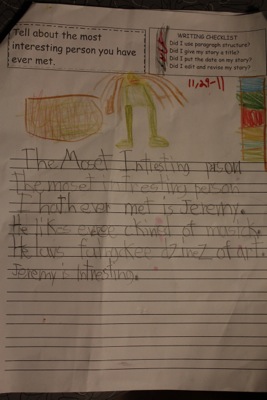 Tell about the most
interesting person you have
ever met.
WRITING CHECKLIST
Did I use paragraph structure?
Did I give my story a title?
Did I put the date on my story?
Did I edit and revise my story?
11,29-11
The Moset Intresting prson
The moset intresting person
I hath ever met is Jeremy.
He likes evree kind of musick.
He lovs
of Art.
Jeremy is Intresting.